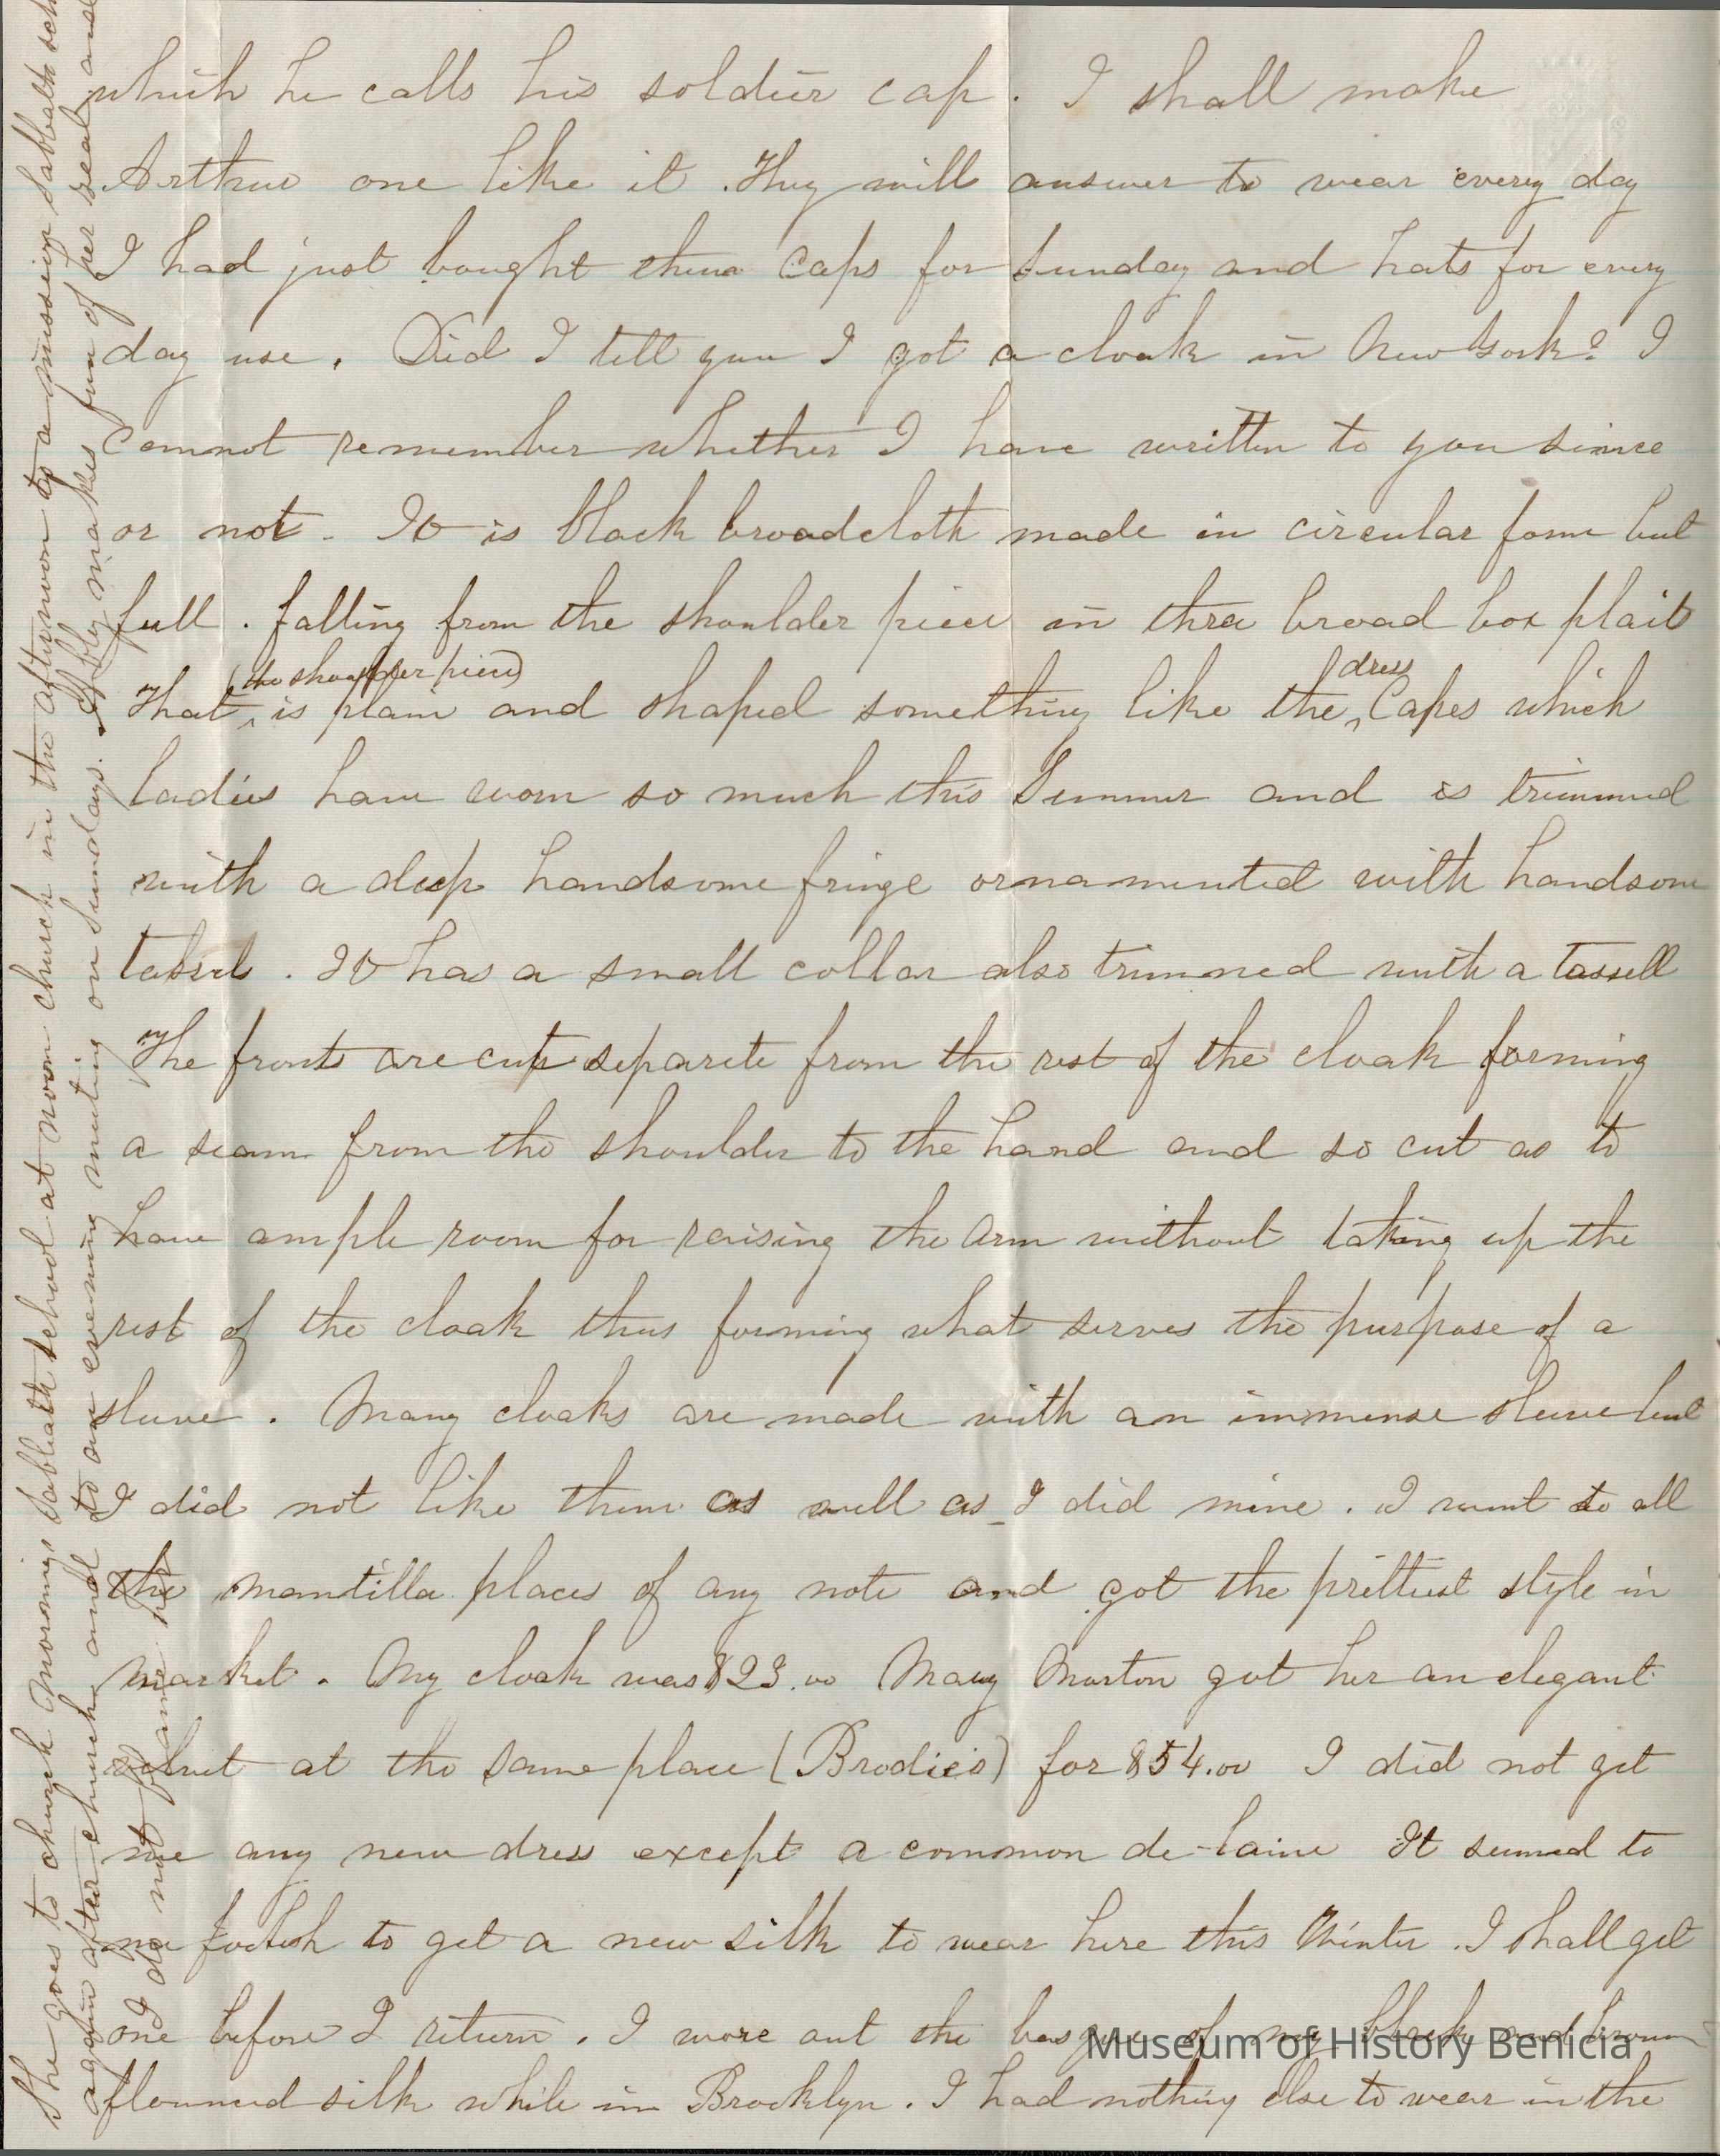 which he calls his soldier cap. I shall make
Arthur one like it. They will answer to wear every day
I had just bought them Caps for Sunday and hats for every
day use. Did I tell you I got a cloak in New York? I
cannot remember whether I have written to you since
or not. It is black broadcloth made in circular form but
full. falling from the shoulder piece in three broad box plaits
(the shoulder piece) dress
That is plain and shaped something like the Capes which
ladies have worn so much this Summer and is trimmed
with a deep handsome fringe ornamented with handsome
tassels. It has a small collar also trimmed with a tassell
The fronts are cut separate from the rest of the cloak forming
a seam from the shoulder to the hand and so cut as to
have ample room for raising the arm without taking up the
rest of the cloak thus forming what serves the purpose of a
sleeve. Many cloaks are made with an immense sleeve but
I did not like them as well as I did mine. I went to all
the mantilla places of any note and got the prettiest style in
market. My cloak was $23.00 Mary Marton got her an elegant
velvet at the same place (Brodie's) for $54.00 I did not get
me any new dress except a common de-laine It seemed to
me foolish to get a new silk to wear here this Winter. I shall get
one before I return. I wore out the basque of my black and brown
flounced silk while in Brooklyn. I had nothing else to wear in the
She goes to church Mornings Sabbath school at noon church in the afternoon to a mission Sabbath
again after church and to an evening meeting on Sundays. Abby makes fun of her
I do not blame her
Museum of History Benicia